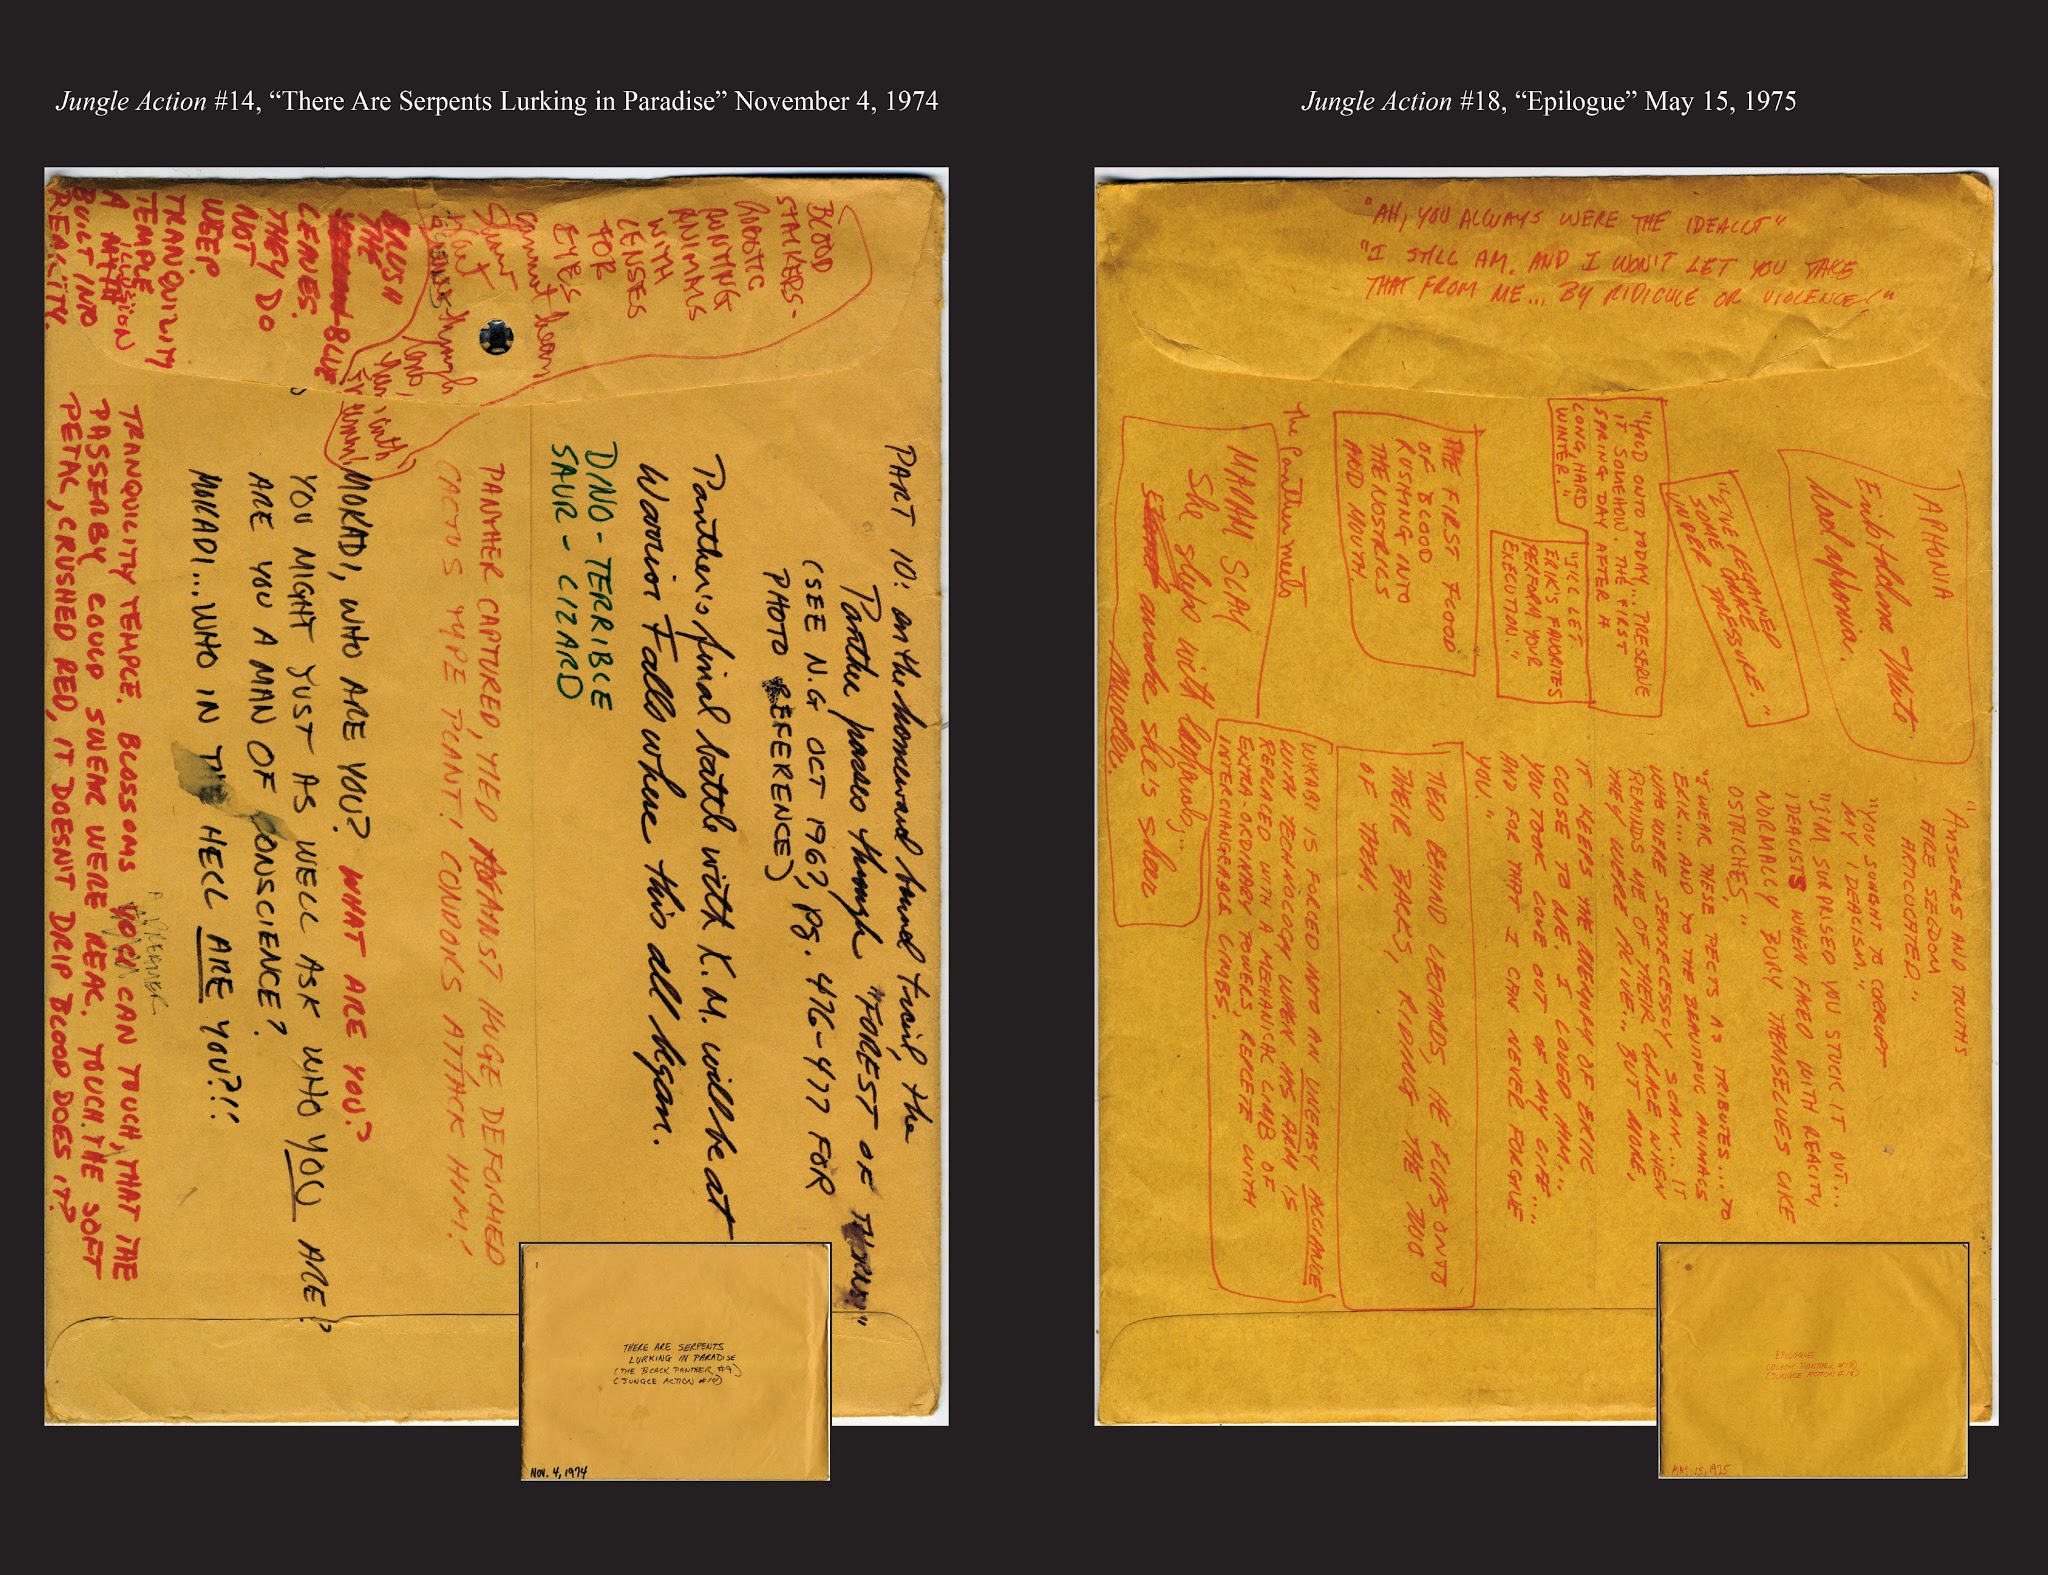 Jungle Action #14, “There Are Serpents Lurking in Paradise” November 4, 1974
PART 10: on the homeward bound trail, the
Panther passes through "FOREST OF THORNS"
(SEE N.G OCT 196?, Pg. 476-477 FOR
PHOTO REFERENCE)
Panther's final battle with K.M. will be at
Warrior Falls where this all began.
DINO-TERRIBLE
SAUR-LIZARD
PANTHER CAPTURED, TIED AGAINST HUGE DEFORMED
CACTUS TYPE PLANT! CONDORS ATTACK HIM!
MOKADI, WHO ARE YOU? WHAT ARE YOU?
YOU MIGHT JUST AS WELL ASK WHO YOU ARE?
ARE YOU A MAN OF CONSCIENCE?
MOKADI...WHO IN THE HELL ARE YOU?!!
A DREAMER
TRANQUILITY TEMPLE. BLOSSOMS YOU CAN TOUCH, THAT THE
PASSERBY COULD SWEAR WERE REAL. TOUCH THE SOFT
PETAL, CRUSHED RED, IT DOESN'T DRIP BLOOD DOES IT?
BLOOD
STALKERS-
ROBOTIC
HUNTING
ANIMALS
WITH
LENSES
FOR
EYES
cannot hear
through
BLUSH
THE
BLUE
LEAVES.
THEY DO
NOT
WEEP.
TRANQUILITY
TEMPLE
A MYTH
ILLUSION
BUILT INTO
REALITY.
THERE ARE SERPENTS
LURKING IN PARADISE
(THE BLACK PANTHER #9)
(JUNGLE ACTION #14)
NOV. 4, 1974
Jungle Action #18, “Epilogue” May 15, 1975
"AH, YOU ALWAYS WERE THE IDEALIST"
"I STILL AM. AND I WON'T LET YOU TAKE
THAT FROM ME... BY RIDICULE OR VIOLENCE!"
APHONIA
Erik Killmonger Mute.
had aphonia.
"I'VE REGAINED
SOME CHAKE
UNDER PRESSURE."
"HOLD ONTO TODAY... PRESERVE
IT SOMEHOW. THE FIRST
SPRING DAY AFTER A
LONG HARD
WINTER."
"I'LL LET
ERIK'S FAVORITES
PERFORM YOUR
EXECUTION."
THE FIRST FLOOD
OF BLOOD
RUSHING INTO
THE NOSTRILS
AND MOUTH.
The Panther meets
MADAM SLAY
She sleeps with leopards,
awake she is sheer
Murder.
"ANSWERS AND TRUTHS
ARE SELDOM
ARTICULATED."
"YOU SOUGHT TO CORRUPT
MY IDEALISM."
"I'M SURPRISED YOU STUCK IT OUT...
IDEALISTS WHEN FACED WITH REALITY
NORMALLY BURY THEMSELVES LIKE
OSTRICHES."
"I WEAR THESE PELTS AS TRIBUTES... TO
ERIK... AND TO THE BEAUTIFUL ANIMALS
WHO WERE SENSELESSLY SLAIN... IT
REMINDS ME OF THEIR GRACE WHEN
THEY WERE ALIVE... BUT MORE,
IT KEEPS THE MEMORY OF ERIK
CLOSE TO ME. I LOVED HIM...
YOU TOOK LOVE OUT OF MY LIFE...
AND FOR THAT I CAN NEVER FORGIVE
YOU."
TIED BEHIND LEOPARDS, HE FLIPS ONTO
THEIR BACKS, RIDING THE TWO
OF THEM.
WKABI IS FORCED INTO AN UNEASY ALLIANCE
WITH TECHNOLOGY WHEN HIS ARM IS
REPLACED WITH A MEHANICAL LIMB OF
EXTRA-ORDINARY POWERS, REPLETE WITH
INTERCHANGEABLE LIMBS.
EPILOGUE
(BLACK PANTHER #13)
(JUNGLE ACTION #18)
MAY 15, 1975